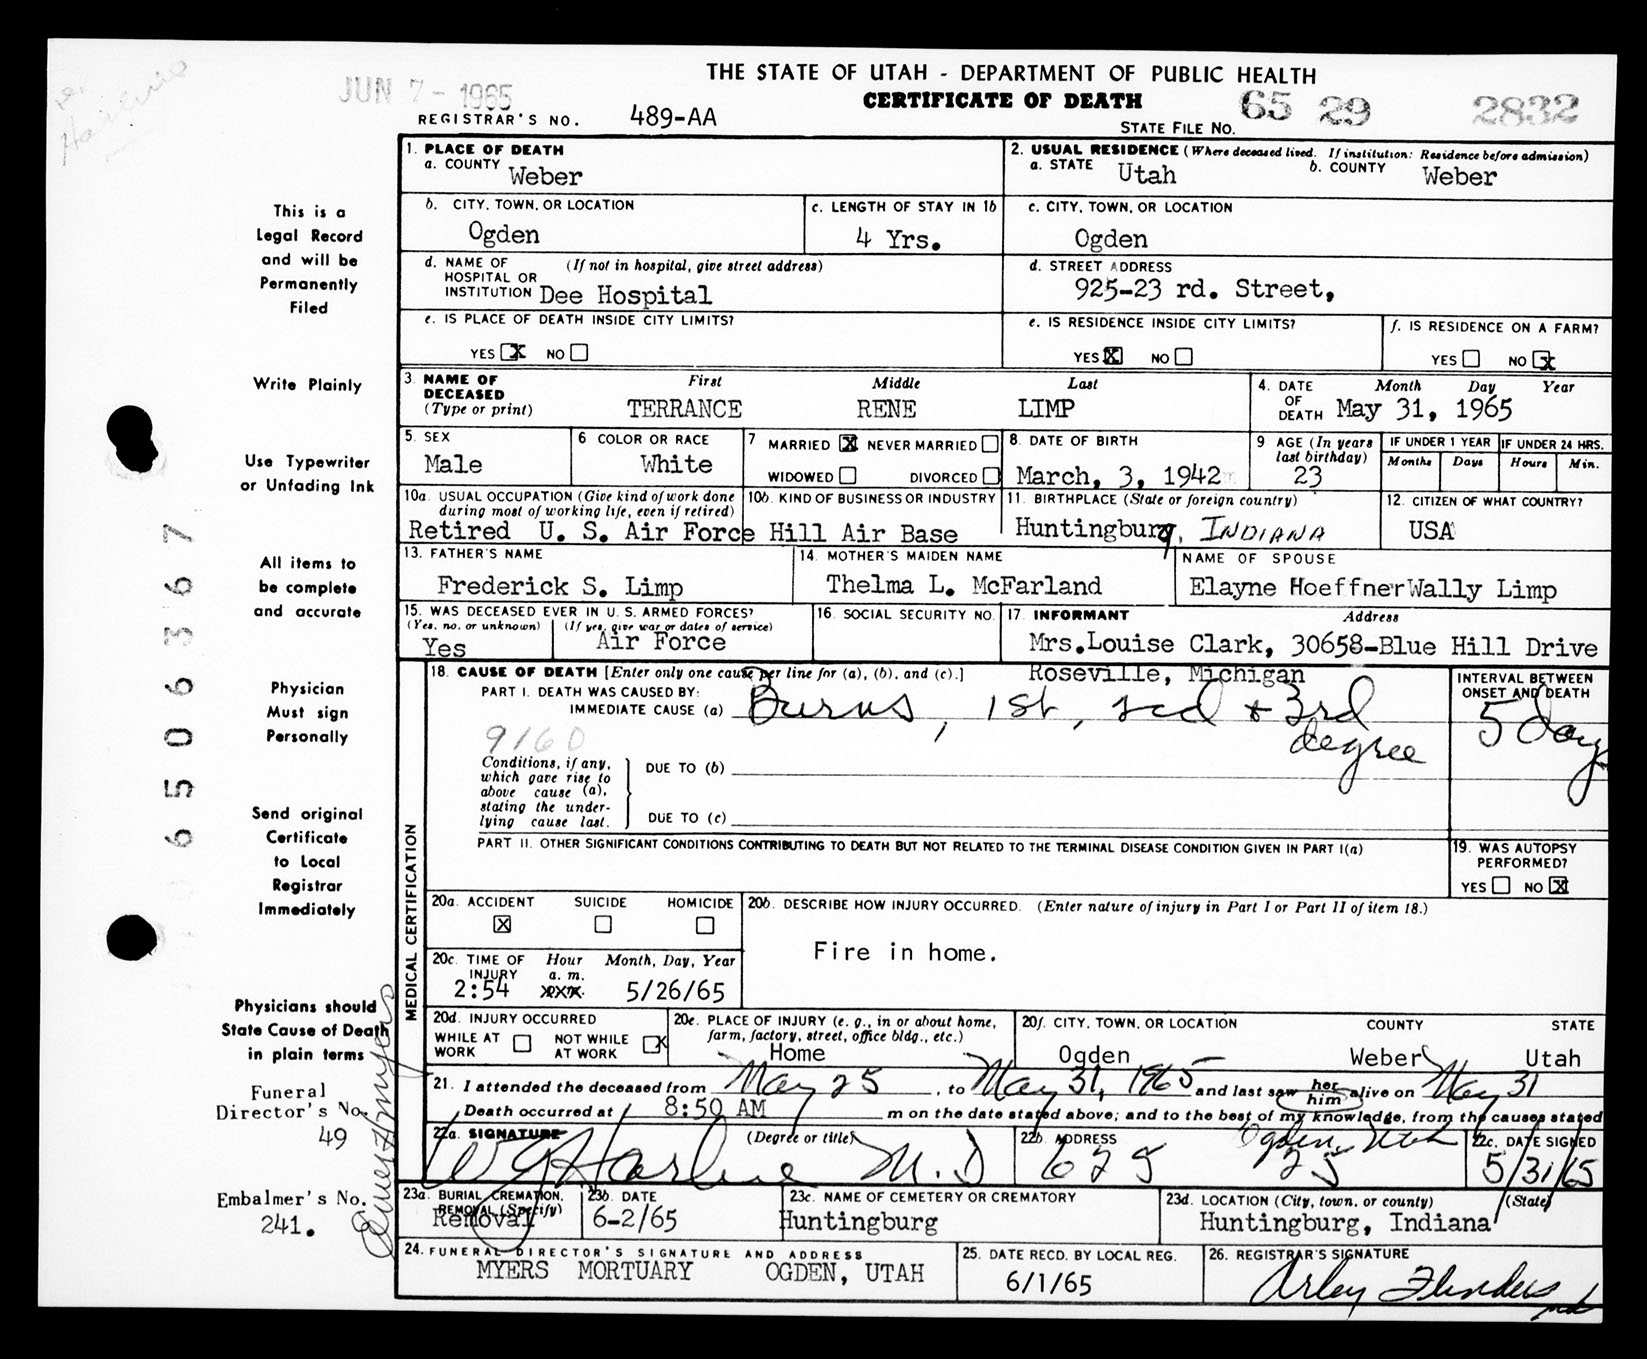 THE STATE OF UTAH - DEPARTMENT OF PUBLIC HEALTH
JUN 7 - 1965
CERTIFICATE OF DEATH
65 29 2832
REGISTRAR'S NO. 489-AA
STATE FILE NO.
1. PLACE OF DEATH
a. COUNTY Weber
2. USUAL RESIDENCE (Where deceased lived. If institution: Residence before admission)
a. STATE Utah b. COUNTY Weber
b. CITY, TOWN, OR LOCATION Ogden
c. LENGTH OF STAY IN 1b 4 Yrs.
c. CITY, TOWN, OR LOCATION Ogden
d. NAME OF HOSPITAL OR INSTITUTION (If not in hospital, give street address) Dee Hospital
d. STREET ADDRESS 925-23 rd. Street,
e. IS PLACE OF DEATH INSIDE CITY LIMITS?
YES X NO
e. IS RESIDENCE INSIDE CITY LIMITS?
YES X NO
f. IS RESIDENCE ON A FARM?
YES NO X
3. NAME OF DECEASED (Type or print)
First Middle Last
TERRANCE RENE LIMP
4. DATE OF DEATH Month Day Year
May 31, 1965
5. SEX Male
6 COLOR OR RACE White
7 MARRIED X NEVER MARRIED
WIDOWED DIVORCED
8. DATE OF BIRTH March, 3, 1942
9 AGE (In years last birthday) 23
IF UNDER 1 YEAR Months Days
IF UNDER 24 HRS. Hours Min.
10a. USUAL OCCUPATION (Give kind of work done during most of working life, even if retired)
Retired U. S. Air Force
10b. KIND OF BUSINESS OR INDUSTRY Hill Air Base
11. BIRTHPLACE (State or foreign country) Huntingburg, INDIANA
12. CITIZEN OF WHAT COUNTRY? USA
13. FATHER'S NAME Frederick S. Limp
14. MOTHER'S MAIDEN NAME Thelma L. McFarland
NAME OF SPOUSE Elayne HoeffnerWally Limp
15. WAS DECEASED EVER IN U. S. ARMED FORCES?
(Yes, no, or unknown) (If yes, give war or dates of service)
Yes Air Force
16. SOCIAL SECURITY NO.
17. INFORMANT Address
Mrs.Louise Clark, 30658-Blue Hill Drive
Roseville, Michigan
MEDICAL CERTIFICATION
18. CAUSE OF DEATH [Enter only one cause per line for (a), (b), and (c).]
PART I. DEATH WAS CAUSED BY:
IMMEDIATE CAUSE (a) Burns, 1st, 2cd & 3rd degree
INTERVAL BETWEEN ONSET AND DEATH
5 days
9160
Conditions, if any, which gave rise to above cause (a), stating the underlying cause last.
DUE TO (b)
DUE TO (c)
PART II. OTHER SIGNIFICANT CONDITIONS CONTRIBUTING TO DEATH BUT NOT RELATED TO THE TERMINAL DISEASE CONDITION GIVEN IN PART I(a)
19. WAS AUTOPSY PERFORMED?
YES NO X
20a. ACCIDENT SUICIDE HOMICIDE
X
20b. DESCRIBE HOW INJURY OCCURRED. (Enter nature of injury in Part I or Part II of item 18.)
Fire in home.
20c. TIME OF INJURY Hour a. m. Month, Day, Year
2:54 5/26/65
20d. INJURY OCCURRED
WHILE AT WORK NOT WHILE AT WORK X
20e. PLACE OF INJURY (e. g., in or about home, farm, factory, street, office bldg., etc.)
Home
20f. CITY, TOWN, OR LOCATION COUNTY STATE
Ogden Weber Utah
21. I attended the deceased from May 25, to May 31, 1965 and last saw her him alive on May 31
Death occurred at 8:50 AM m on the date stated above; and to the best of my knowledge, from the causes stated
22a. SIGNATURE (Degree or title)
W G Harline M.D
22b. ADDRESS
625 25 Ogden, Utah
22c. DATE SIGNED
5/31/65
23a. BURIAL, CREMATION, REMOVAL (Specify)
Removal
23b. DATE 6-2/65
23c. NAME OF CEMETERY OR CREMATORY Huntingburg
23d. LOCATION (City, town, or county) (State)
Huntingburg, Indiana
24. FUNERAL DIRECTOR'S SIGNATURE AND ADDRESS
MYERS MORTUARY OGDEN, UTAH
25. DATE RECD. BY LOCAL REG. 6/1/65
26. REGISTRAR'S SIGNATURE
Arley Flinders
This is a
Legal Record
and will be
Permanently
Filed
Write Plainly
Use Typewriter
or Unfading Ink
All items to
be complete
and accurate
Physician
Must sign
Personally
Send original
Certificate
to Local
Registrar
Immediately
Physicians should
State Cause of Death
in plain terms
Funeral
Director's No.
49
Embalmer's No.
241.
6506367